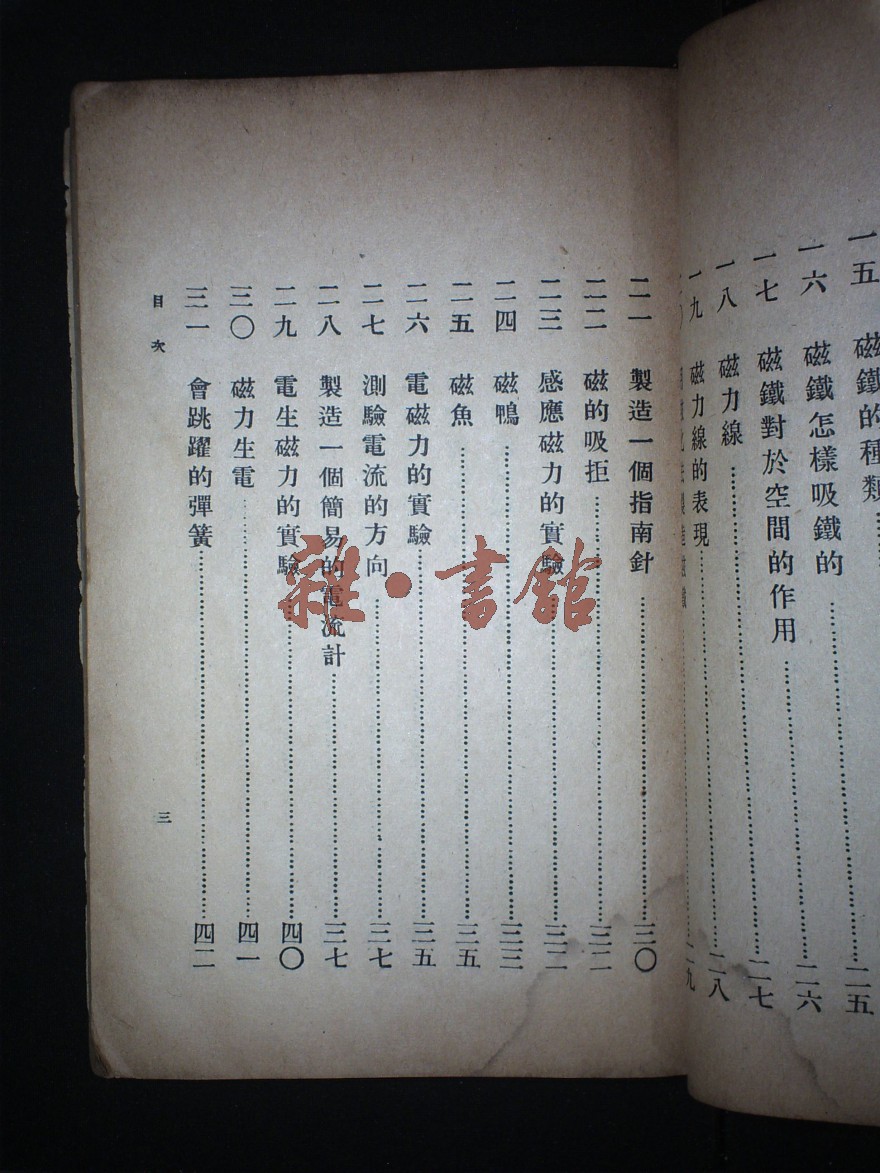 一五 磁鐵的種類……二五
一六 磁鐵怎樣吸鐵的……二六
一七 磁鐵對於空間的作用……二七
一八 磁力線……二八
一九 磁力線的表現……二九
二一 製造一個指南針……三〇
二二 磁的吸拒……三二
二三 感應磁力的實驗……三二
二四 磁鴨……三三
二五 磁魚……三五
二六 電磁力的實驗……三五
二七 測驗電流的方向……三七
二八 製造一個簡易的電流計……三七
二九 電生磁力的實驗……四〇
三〇 磁力生電……四一
三一 會跳躍的彈簧……四二
目次
三
雜·書館